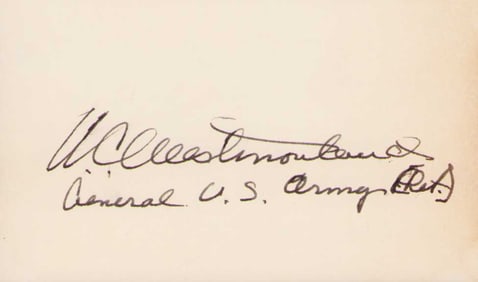 WCWestmoreland
General U.S. Army (Ret.)